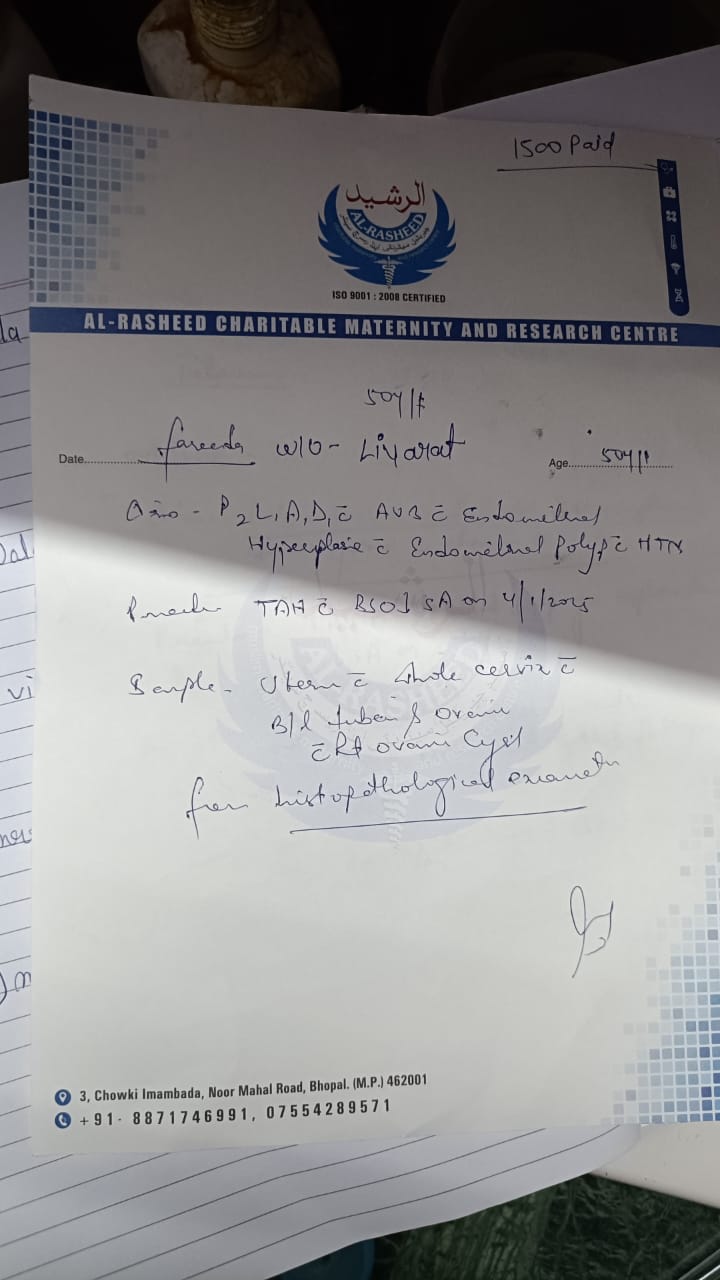 1500 Paid
الرشيد
AL-RASHEED
ISO 9001 : 2008 CERTIFIED
AL-RASHEED CHARITABLE MATERNITY AND RESEARCH CENTRE
50Y/F
Date.................. Fareeda w/o - Liyarat Age.................. 50Y/F
P2L1A1D1 c̄ AUB c̄ Endometrial
Hyperplasia c̄ Endometrial Polyp c̄ HTN
TAH c̄ BSO SA on 4/1/2025
Sample - Uterus c̄ whole cervix c̄
B/L tubes & Ovaries
c̄ Rt ovarian Cyst
for histopathological
3, Chowki Imambada, Noor Mahal Road, Bhopal. (M.P.) 462001
+91- 8871746991, 07554289571